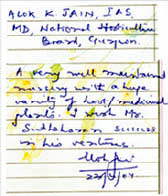 ALOK K. JAIN, IAS
MD, National Horticulture
Board, Gurgaon.
A very well maintained
nursery with a huge
variety of hort/medicinal
plants. I wish Mr.
Success
in his ventures.
22/9/04